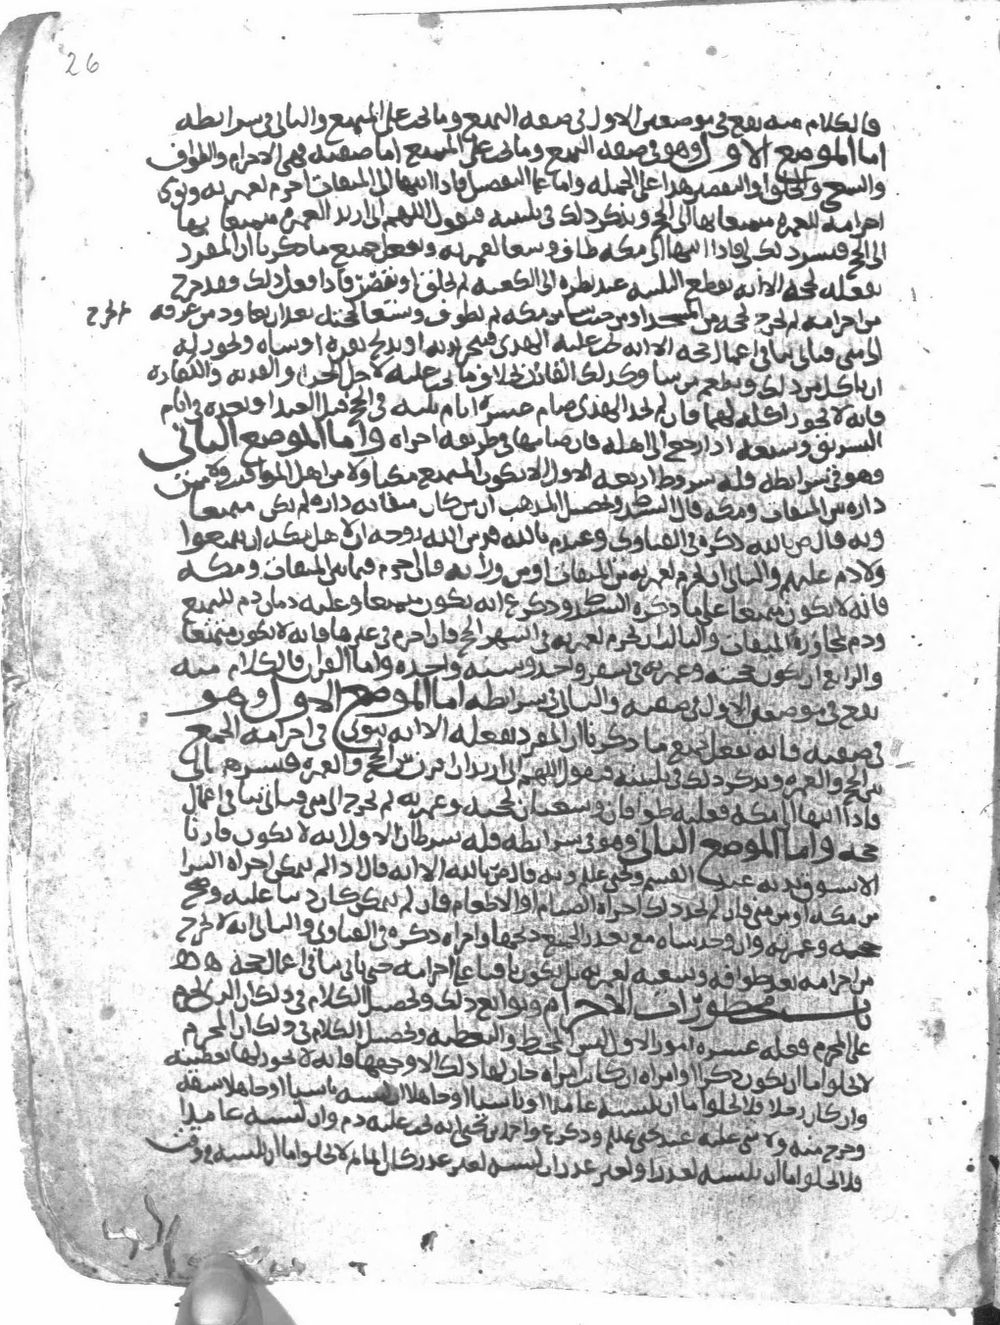 26
فالكلام منه يقع في موضعين الاول في صفة التمتع وما يجب على المتمتع والثاني في شرائطه
اما الموضع الاول وهو في صفة التمتع وما يجب على المتمتع اما صفته فهي الاحرام والطواف
والسعي والحلق او التقصير هذا على الجملة واما على التفصيل فاذا انتهى الى الميقات احرم لعمرته ونوى
احرامه للعمرة متمتعا بها الى الحج ويذكر ذلك في تلبيته فيقول اللهم اني اريد العمرة متمتعا بها
الى الحج فيسر ذلك لي فاذا انتهى الى مكة طاف وسعا لعمرته ويفعل جميع ما ذكرنا ان المفرد
يفعله لحجه الا انه يقطع التلبية عند نظره الى الكعبة ثم يحلق او يقصر فاذا فعل ذلك فقد خرج
من احرامه ثم يحرم لحجه من المسجد او من حيث شا من مكة ثم يطوف ويسعا لحجته بعد ان يعاود من عرفة
الى منى فياتي بباقي اعمال حجه الا انه يجب عليه الهدي فينحر بدنه او يذبح بقرة او شاه ويجوز له
ان ياكل من ذلك ويطعم من شا وكذلك القارن بخلاف ما يجب عليه لاجل الجزا والفدية والكفارة
فانه لا يجوز اكله لهما فان لم يجد الهدي صام عشرة ايام ثلثة في الحج قبل العيد او بعده في ايام
التشريق وسبعة اذا رجع الى اهله فان صامها في طريقه اجزاه واما الموضع الثاني
وهو في شرائطه فله شروط اربعة الاول الا يكون المتمتع مكيا ولا من اهل المواقيت ولا من
داره بين الميقات ومكة قال السيد وتحصيل المذهب ان من كان ميقاته داره لم يكن متمتعا
وبه قال ص بالله ذكره في الفتاوى وعند م بالله قدس الله روحه ان لاهل مكة ان يتمتعوا
ولا دم عليهم والثاني ان يحرم لعمرته من الميقات او من ورائه فان احرم فيما بين الميقات ومكة
فانه لا يكون متمتعا على ما ذكره السيد وذكر ع انه يكون متمتعا وعليه دمان دم للتمتع
ودم لمجاوزة الميقات والثالث ان يحرم لعمرته في اشهر الحج فان احرم في غيرها فانه لا يكون متمتعا
والرابع ان يكون حجته وعمرته في سفر واحد وسنة واحدة واما القران فالكلام منه
يقع في موضعين الاول في صفته والثاني في شرائطه اما الموضع الاول وهو
في صفته فانه يفعل جميع ما ذكرنا ان المفرد يفعله الا انه ينوي في احرامه الجمع
بين الحج والعمرة ويذكر ذلك في تلبيته فيقول اللهم اني اريد ان اقرن بين الحج والعمرة فيسرهما لي
فاذا انتهى الى مكة فعليه طوافان وسعيان لحجته وعمرته ثم يخرج الى منى فياتي بباقي اعمال
حجه واما الموضع الثاني وهو في شرائطه فله شرطان الاول انه لا يكون قارنا
الا بسوق بدنه عند القسم ويحيى عليلم وبه قال ص بالله الا انه قال اذا لم يتمكن اجزاه الشرا
من مكة او من منى فان لم يجد ذلك اجزاه الصيام او الاطعام فان لم يتمكن كان دينا عليه وصح
حجه وعمرته وان وجد شاه مع تعذر الجميع ذبحها واجزاه ذكره في الفتاوى والثاني انه لا يخرج
من احرامه بعد طوافه وسعيه لعمرته بل يكون باقيا على احرامه حتى ياتي بباقي اعمال حجه
باب محظورات الاحرام وتوابع ذلك وتحصيل الكلام في ذلك ان الذي يحرم
على المحرم فعله عشرة امور الاول لبس المخيط والتغطية وتحصيل الكلام في ذلك ان المحرم
لا يخلوا اما ان يكون ذكرا او امراه ان كان امراه جاز لها ذلك الا وجهها فانه لا يجوز لها تغطيته
وان كان رجلا فلا يخلوا اما ان يلبسه عامدا او ناسيا او جاهلا ان لبسه ناسيا او جاهلا شقه
وخرج منه ولا شي عليه عند يحيى عليلم وذكر ع واحمد بن يحيى انه يجب عليه دم وان لبسه عامدا
فلا يخلوا اما ان يلبسه لعذر او لغير عذر ان لبسه لغير عذر كان اثما ثم لا يخلوا اما ان يلبسه في وقت